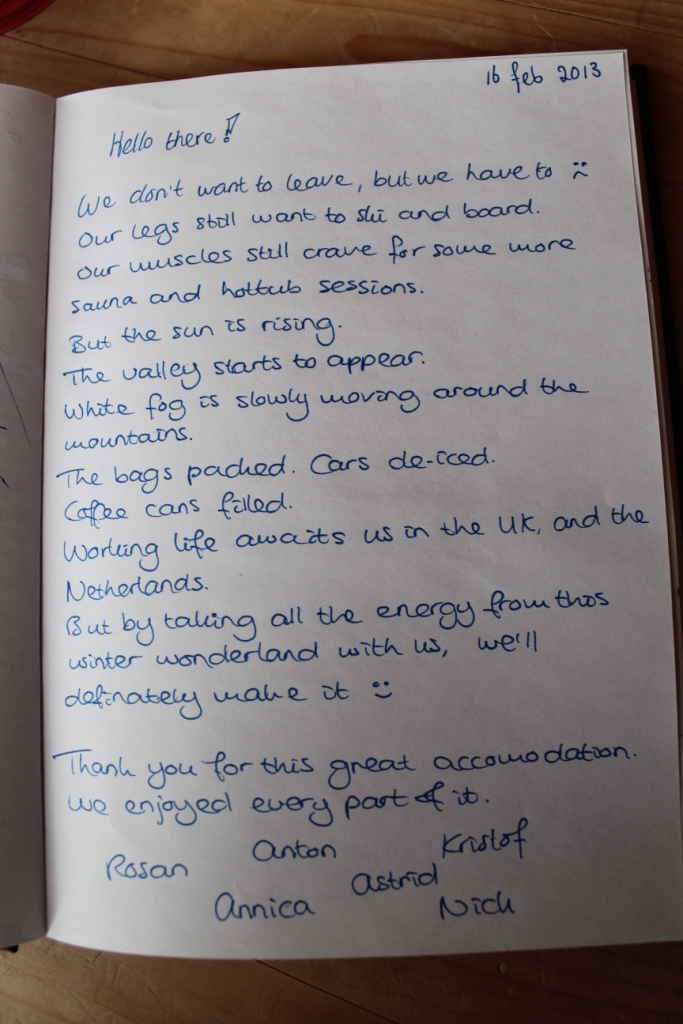 16 feb 2013
Hello there!
We don't want to leave, but we have to :(
Our legs still want to ski and board.
Our muscles still crave for some more
sauna and hottub sessions.
But the sun is rising.
The valley starts to appear.
White fog is slowly moving around the
mountains.
The bags packed. Cars de-iced.
Coffee cans filled.
Working life awaits us in the UK, and the
Netherlands.
But by taking all the energy from this
winter wonderland with us, we'll
definately make it :)
Thank you for this great accomodation.
We enjoyed every part of it.
Rosan Anton Kristof
Astrid
Annica Nick